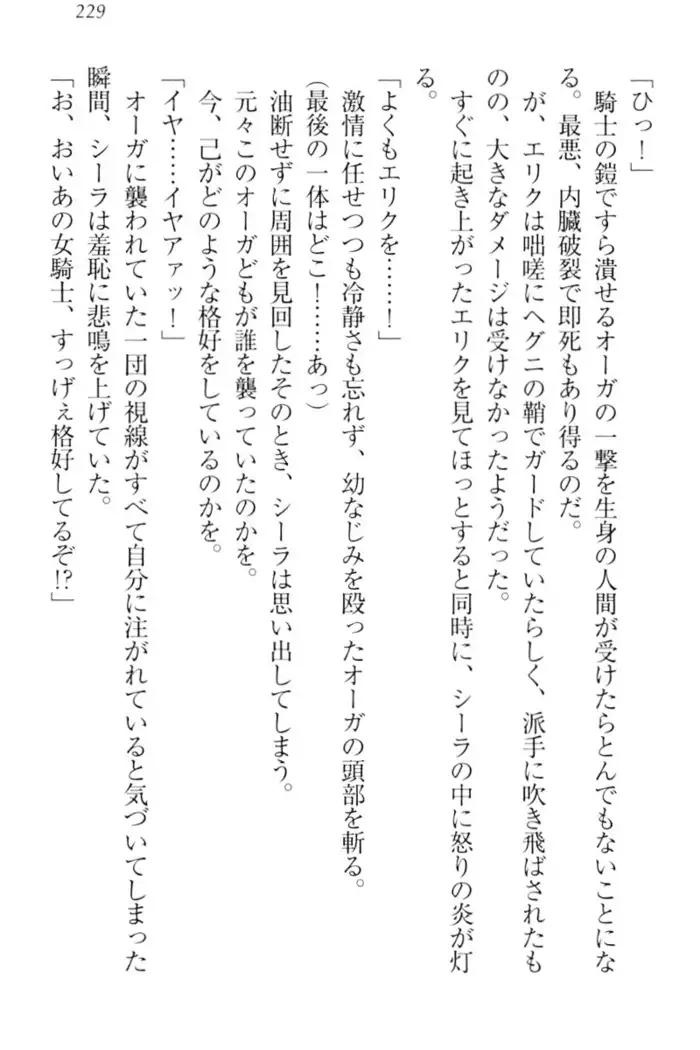 229
「ひっ！」
　騎士の鎧ですら潰せるオーガの一撃を生身の人間が受けたらとんでもないことにな
る。最悪、内臓破裂で即死もあり得るのだ。
　が、エリクは咄嗟にヘグニの鞘でガードしていたらしく、派手に吹き飛ばされたも
のの、大きなダメージは受けなかったようだった。
　すぐに起き上がったエリクを見てほっとすると同時に、シーラの中に怒りの炎が灯
る。
「よくもエリクを……！」
　激情に任せつつも冷静さも忘れず、幼なじみを殴ったオーガの頭部を斬る。
（最後の一体はどこ！……あっ）
　油断せずに周囲を見回したそのとき、シーラは思い出してしまう。
　元々このオーガどもが誰を襲っていたのかを。
　今、己がどのような格好をしているのかを。
「イヤ……イヤアァッ！」
　オーガに襲われていた一団の視線がすべて自分に注がれていると気づいてしまった
瞬間、シーラは羞恥に悲鳴を上げていた。
「お、おいあの女騎士、すっげぇ格好してるぞ!?」